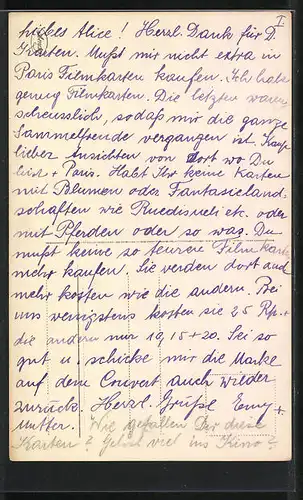 I
Liebes Alice! Herzl. Dank für D.
Karten. Mußt mir nicht extra in
Paris Filmkarten kaufen. Ich habe
genug Filmkarten. Die letzten waren
scheusslich, sodaß mir die ganze
Sammelfreude vergangen ist. Kaufe
lieber Ansichten von dort wo Du
bist + Paris. Habt Ihr keine Karten
mit Blumen oder Fantasieland-
schaften wie Ruedisueli etc. oder
mit Pferden oder so was. Du
mußt keine so teuere Filmkarten
mehr kaufen. Sie werden dort auch
mehr kosten wie die andern. Bei
uns wenigstens kosten sie 25 Rp. +
die andern nur 10, 15 + 20. Sei so
gut u. schicke mir die Marke
auf dem Couvert auch wieder
zurück. Herzl. Grüße Emy +
Mutter. Wie gefallen Dir diese
Karten? Gehst viel ins Kino?